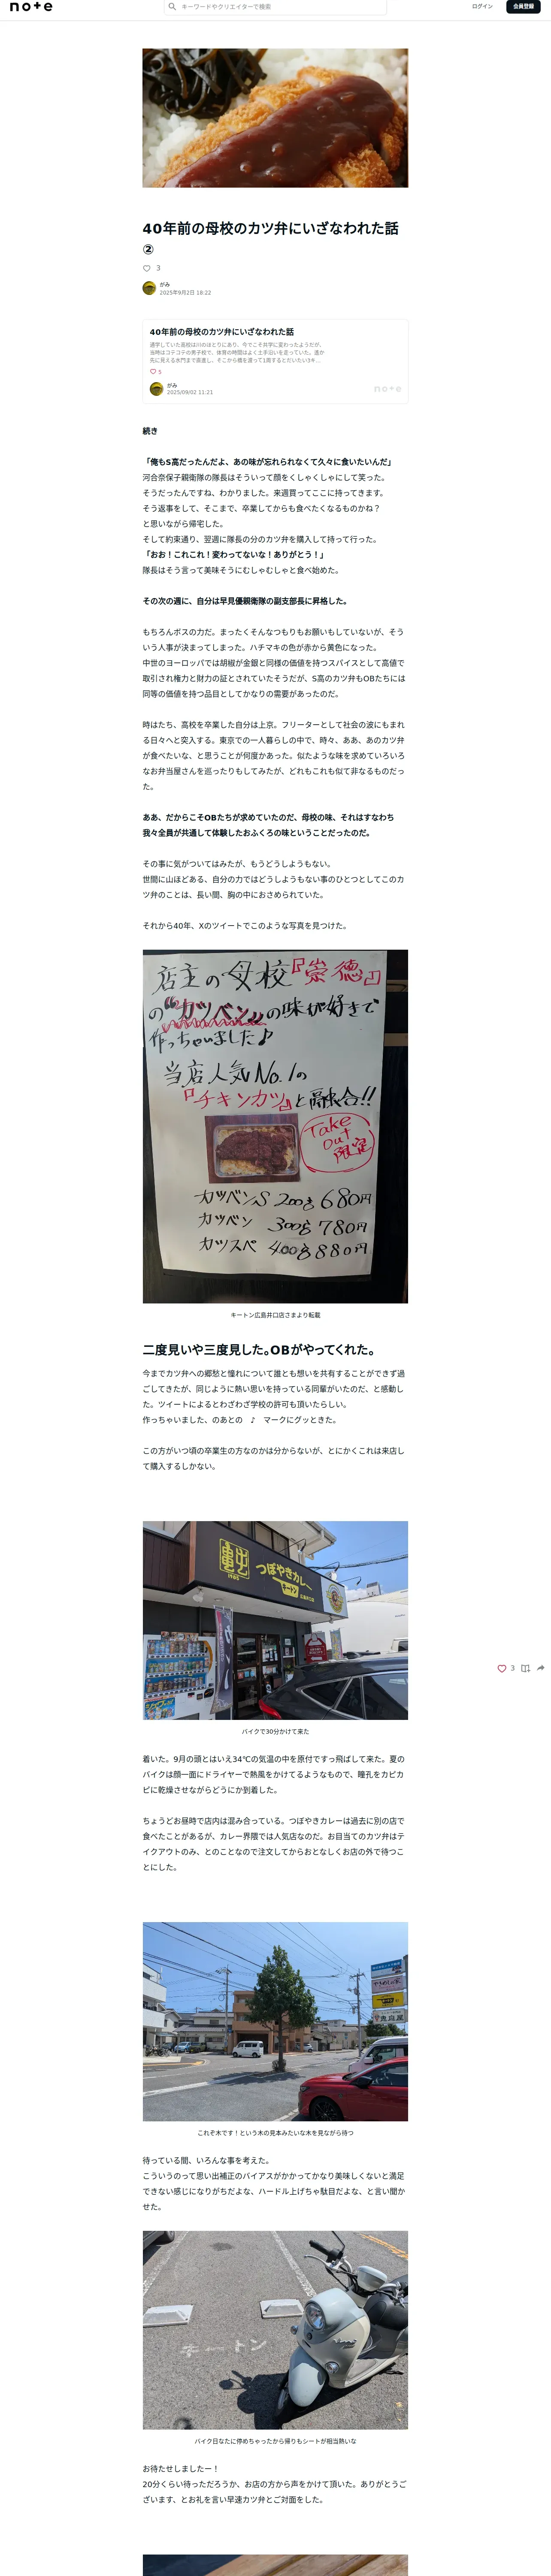 note
キーワードやクリエイターで検索
ログイン
会員登録
40年前の母校のカツ弁にいざなわれた話
②
3
がみ
2025年9月2日 18:22
40年前の母校のカツ弁にいざなわれた話
通学していた高校は川のほとりにあり、今でこそ共学に変わったようだが、
当時はコテコテの男子校で、体育の時間はよく土手沿いを走っていた。遙か
先に見える水門まで直進し、そこから橋を渡って1周するとだいたい3キ…
5
がみ
2025/09/02 11:21
note
続き
「俺もS高だったんだよ、あの味が忘れられなくて久々に食いたいんだ」
河合奈保子親衛隊の隊長はそういって顔をくしゃくしゃにして笑った。
そうだったんですね、わかりました。来週買ってここに持ってきます。
そう返事をして、そこまで、卒業してからも食べたくなるものかね？
と思いながら帰宅した。
そして約束通り、翌週に隊長の分のカツ弁を購入して持って行った。
「おお！これこれ！変わってないな！ありがとう！」
隊長はそう言って美味そうにむしゃむしゃと食べ始めた。
その次の週に、自分は早見優親衛隊の副支部長に昇格した。
もちろんボスの力だ。まったくそんなつもりもお願いもしていないが、そう
いう人事が決まってしまった。ハチマキの色が赤から黄色になった。
中世のヨーロッパでは胡椒が金銀と同様の価値を持つスパイスとして高値で
取引され権力と財力の証とされていたそうだが、S高のカツ弁もOBたちには
同等の価値を持つ品目としてかなりの需要があったのだ。
時はたち、高校を卒業した自分は上京。フリーターとして社会の波にもまれ
る日々へと突入する。東京での一人暮らしの中で、時々、ああ、あのカツ弁
が食べたいな、と思うことが何度かあった。似たような味を求めていろいろ
なお弁当屋さんを巡ったりもしてみたが、どれもこれも似て非なるものだっ
た。
ああ、だからこそOBたちが求めていたのだ、母校の味、それはすなわち
我々全員が共通して体験したおふくろの味ということだったのだ。
その事に気がついてはみたが、もうどうしようもない。
世間に山ほどある、自分の力ではどうしようもない事のひとつとしてこのカ
ツ弁のことは、長い間、胸の中におさめられていた。
それから40年、Xのツイートでこのような写真を見つけた。
店主の母校『崇徳』
の“カツベン”の味が好きで
作っちゃいました♪
当店人気No.1の
『チキンカツ』と融合!!
Take
out
限定
カツベンS 200g 680円
カツベン 300g 780円
カツスペ 400g 880円
キートン広島井口店さまより転載
二度見いや三度見した。OBがやってくれた。
今までカツ弁への郷愁と憧れについて誰とも想いを共有することができず過
ごしてきたが、同じように熱い思いを持っている同輩がいたのだ、と感動し
た。ツイートによるとわざわざ学校の許可も頂いたらしい。
作っちゃいました、のあとの　♪　マークにグッときた。
この方がいつ頃の卒業生の方なのかは分からないが、とにかくこれは来店し
て購入するしかない。
つぼやきカレー
キートン
3
バイクで30分かけて来た
着いた。9月の頭とはいえ34℃の気温の中を原付ですっ飛ばして来た。夏の
バイクは顔一面にドライヤーで熱風をかけてるようなもので、瞳孔をカピカ
ピに乾燥させながらどうにか到着した。
ちょうどお昼時で店内は混み合っている。つぼやきカレーは過去に別の店で
食べたことがあるが、カレー界隈では人気店なのだ。お目当てのカツ弁はテ
イクアウトのみ、とのことなので注文してからおとなしくお店の外で待つこ
とにした。
これぞ木です！という木の見本みたいな木を見ながら待つ
待っている間、いろんな事を考えた。
こういうのって思い出補正のバイアスがかかってかなり美味しくないと満足
できない感じになりがちだよな、ハードル上げちゃ駄目だよな、と言い聞か
せた。
キートン
バイク日なたに停めちゃったから帰りもシートが相当熱いな
お待たせしましたー！
20分くらい待っただろうか、お店の方から声をかけて頂いた。ありがとうご
ざいます、とお礼を言い早速カツ弁とご対面をした。